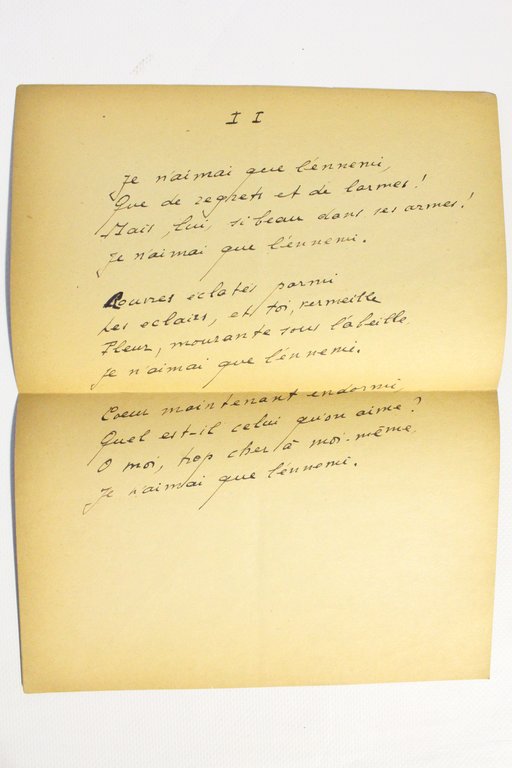 II
Je n'aimai que l'ennemi,
Que de regrets et de larmes!
Mais lui, si beau dans ses armes!
Je n'aimai que l'ennemi.
Louvres eclatés parmi
Les eclairs, et toi, vermeille
Fleur, mourante sous l'abeille.
Je n'aimai que l'ennemi.
Coeur maintenant endormi,
Quel est-il celui qu'on aime?
O moi, trop cher à moi-même.
Je n'aimai que l'ennemi.